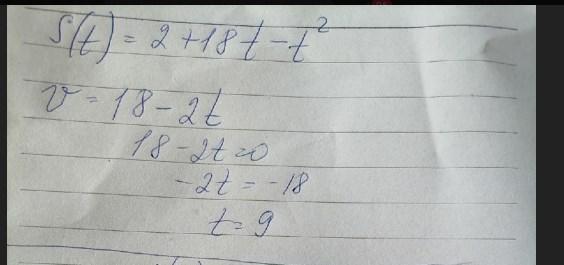 S(t) = 2 + 18t - t²
v = 18 - 2t
18 - 2t = 0
-2t = -18
t = 9